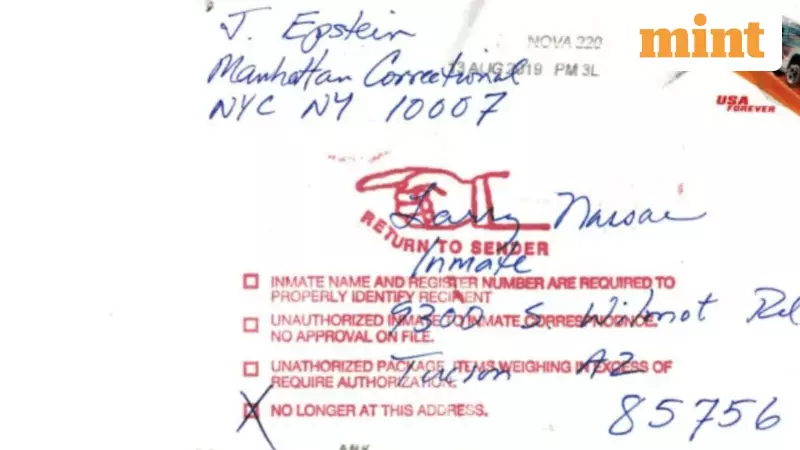 J. Epstein
Manhattan Correctional
NYC NY 10007
NOVA 220
13 AUG 2019 PM 3L
mint
USA
FOREVER
RETURN TO SENDER
Larry Nassar
Inmate
INMATE NAME AND REGISTER NUMBER ARE REQUIRED TO
PROPERLY IDENTIFY RECIPIENT
9300 S. Wilmot Rd
UNAUTHORIZED INMATE TO INMATE CORRESPONDENCE.
NO APPROVAL ON FILE.
Tucson AZ
UNAUTHORIZED PACKAGE. ITEMS WEIGHING IN EXCESS OF
REQUIRE AUTHORIZATION.
85756
X NO LONGER AT THIS ADDRESS.